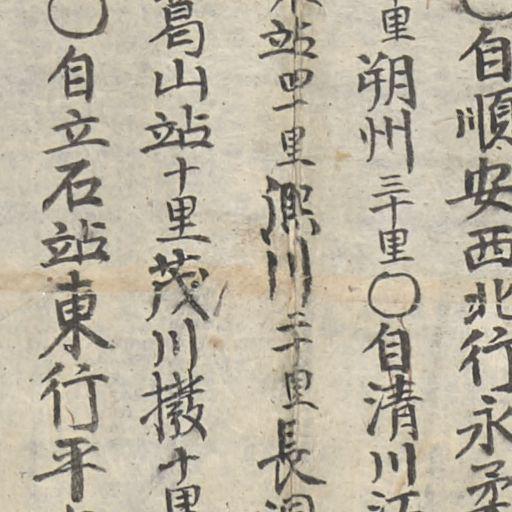 ○自順安西北行永柔
里朔州三十里○自清川江
站四十里深川二十里長洞
葛山站十里茂川撥十里
○自立石站東行平